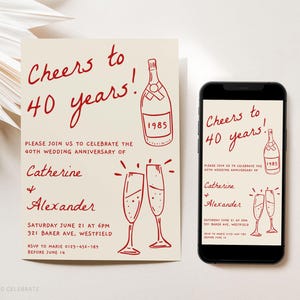 Cheers to
40 years!
1985
PLEASE JOIN US TO CELEBRATE THE
40TH WEDDING ANNIVERSARY OF
Catherine
&
Alexander
SATURDAY JUNE 21 AT 6PM
321 BAKER AVE, WESTFIELD
RSVP TO MARIE 0123-456-789
BEFORE JUNE 14
Cheers to
40 years!
1985
PLEASE JOIN US TO CELEBRATE THE
40TH WEDDING ANNIVERSARY OF
Catherine
&
Alexander
SATURDAY JUNE 21 AT 6PM
321 BAKER AVE, WESTFIELD
RSVP TO MARIE 0123-456-789
BEFORE JUNE 14
CELEBRATE